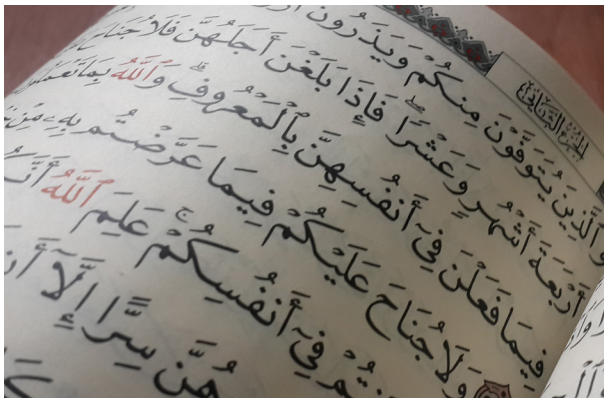 الجزء الثاني
وَٱلَّذِينَ يُتَوَفَّوْنَ مِنكُمْ وَيَذَرُونَ
أَرْبَعَةَ أَشْهُرٍ وَعَشْرًا ۖ فَإِذَا بَلَغْنَ أَجَلَهُنَّ فَلَا جُنَاحَ
فِيمَا فَعَلْنَ فِىٓ أَنفُسِهِنَّ بِٱلْمَعْرُوفِ ۗ وَٱللَّهُ بِمَا
وَلَا جُنَاحَ عَلَيْكُمْ فِيمَا عَرَّضْتُم بِهِۦ مِنْ
فِىٓ أَنفُسِكُمْ ۚ عَلِمَ ٱللَّهُ
هُنَّ سِرًّا إِلَّآ أَن